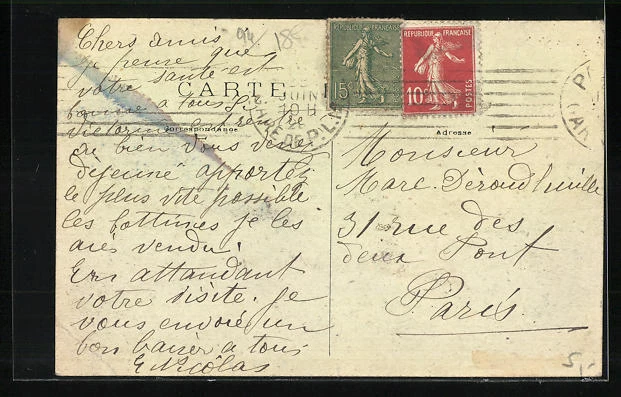 Chers amis
je pense que
votre santé est
bonne a tous. Si
Victorine rentre
ou bien vous venez
déjeuné apportez
le plus vite possible
les bottines je les
aies vendu.
En attandant
votre visite. je
vous envoie un
bon baiser a tous
E Nicolas
94/ 18e
RÉPUBLIQUE FRANÇAISE
15c
RÉPUBLIQUE FRANÇAISE
10c
POSTES
CARTE
JUIN
10 H
Correspondance
Adresse
Monsieur
Marc
31 rue des
deux Pont
Paris